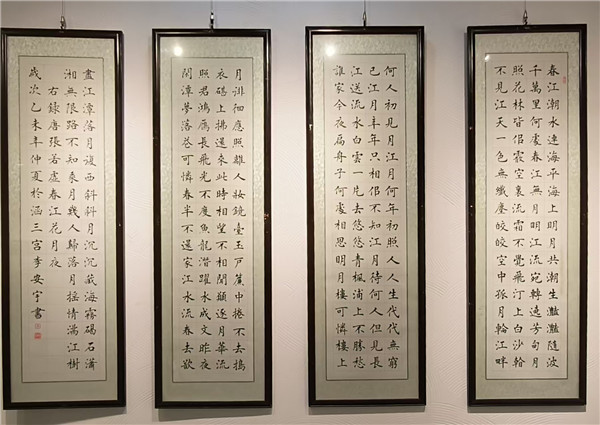 春江潮水連海平海上明月共潮生灩灩隨波
千萬里何處春江無月明江流宛轉遶芳甸月
照花林皆佀霰空裏流霜不覺飛汀上白沙看
不見江天一色無纖塵皎皎空中孤月輪江畔
何人初見月江月何年初照人人生代代無窮
已江月年年只相佀不知江月待何人但見長
江送流水白雲一片去悠悠青楓浦上不勝愁
誰家今夜扁舟子何處相思明月樓可憐樓上
月徘徊應照離人妝鏡臺玉戶簾中捲不去搗
衣砧上拂還來此時相望不相聞願逐月華流
照君鴻鴈長飛光不度魚龍潛躍水成文昨夜
閒潭夢落花可憐春半不還家江水流春去欲
盡江潭落月復西斜斜月沉沉藏海霧碣石瀟
湘無限路不知乘月幾人歸落月搖情滿江樹
右錄唐張若虛春江花月夜
歲次乙未年仲夏於涵三宮李安宇書